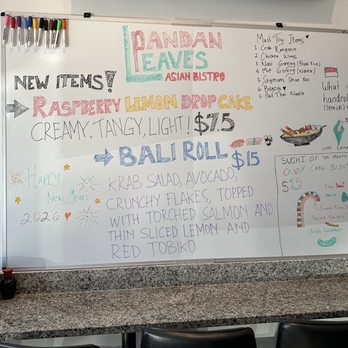 PANDAN
LEAVES
ASIAN BISTRO
NEW ITEMS!
RASPBERRY LEMON DROP CAKE
CREAMY, TANGY, LIGHT! $7.5
BALI ROLL $15
KRAB SALAD, AVOCADO,
CRUNCHY FLAKES, TOPPED
WITH TORCHED SALMON AND
THIN SLICED LEMON AND
RED TOBIKO
Happy
New Years
2026
Must Try Items!
1. Crab Rangoon
2. Chicken Wings
3. Nasi Goreng (Fried Rice)
4. Mee Goreng (Noodle)
7. Pad Thai Noodle
What
handrol
SUSHI OF THE MONTH
CANDY CANE SUSHI
$15